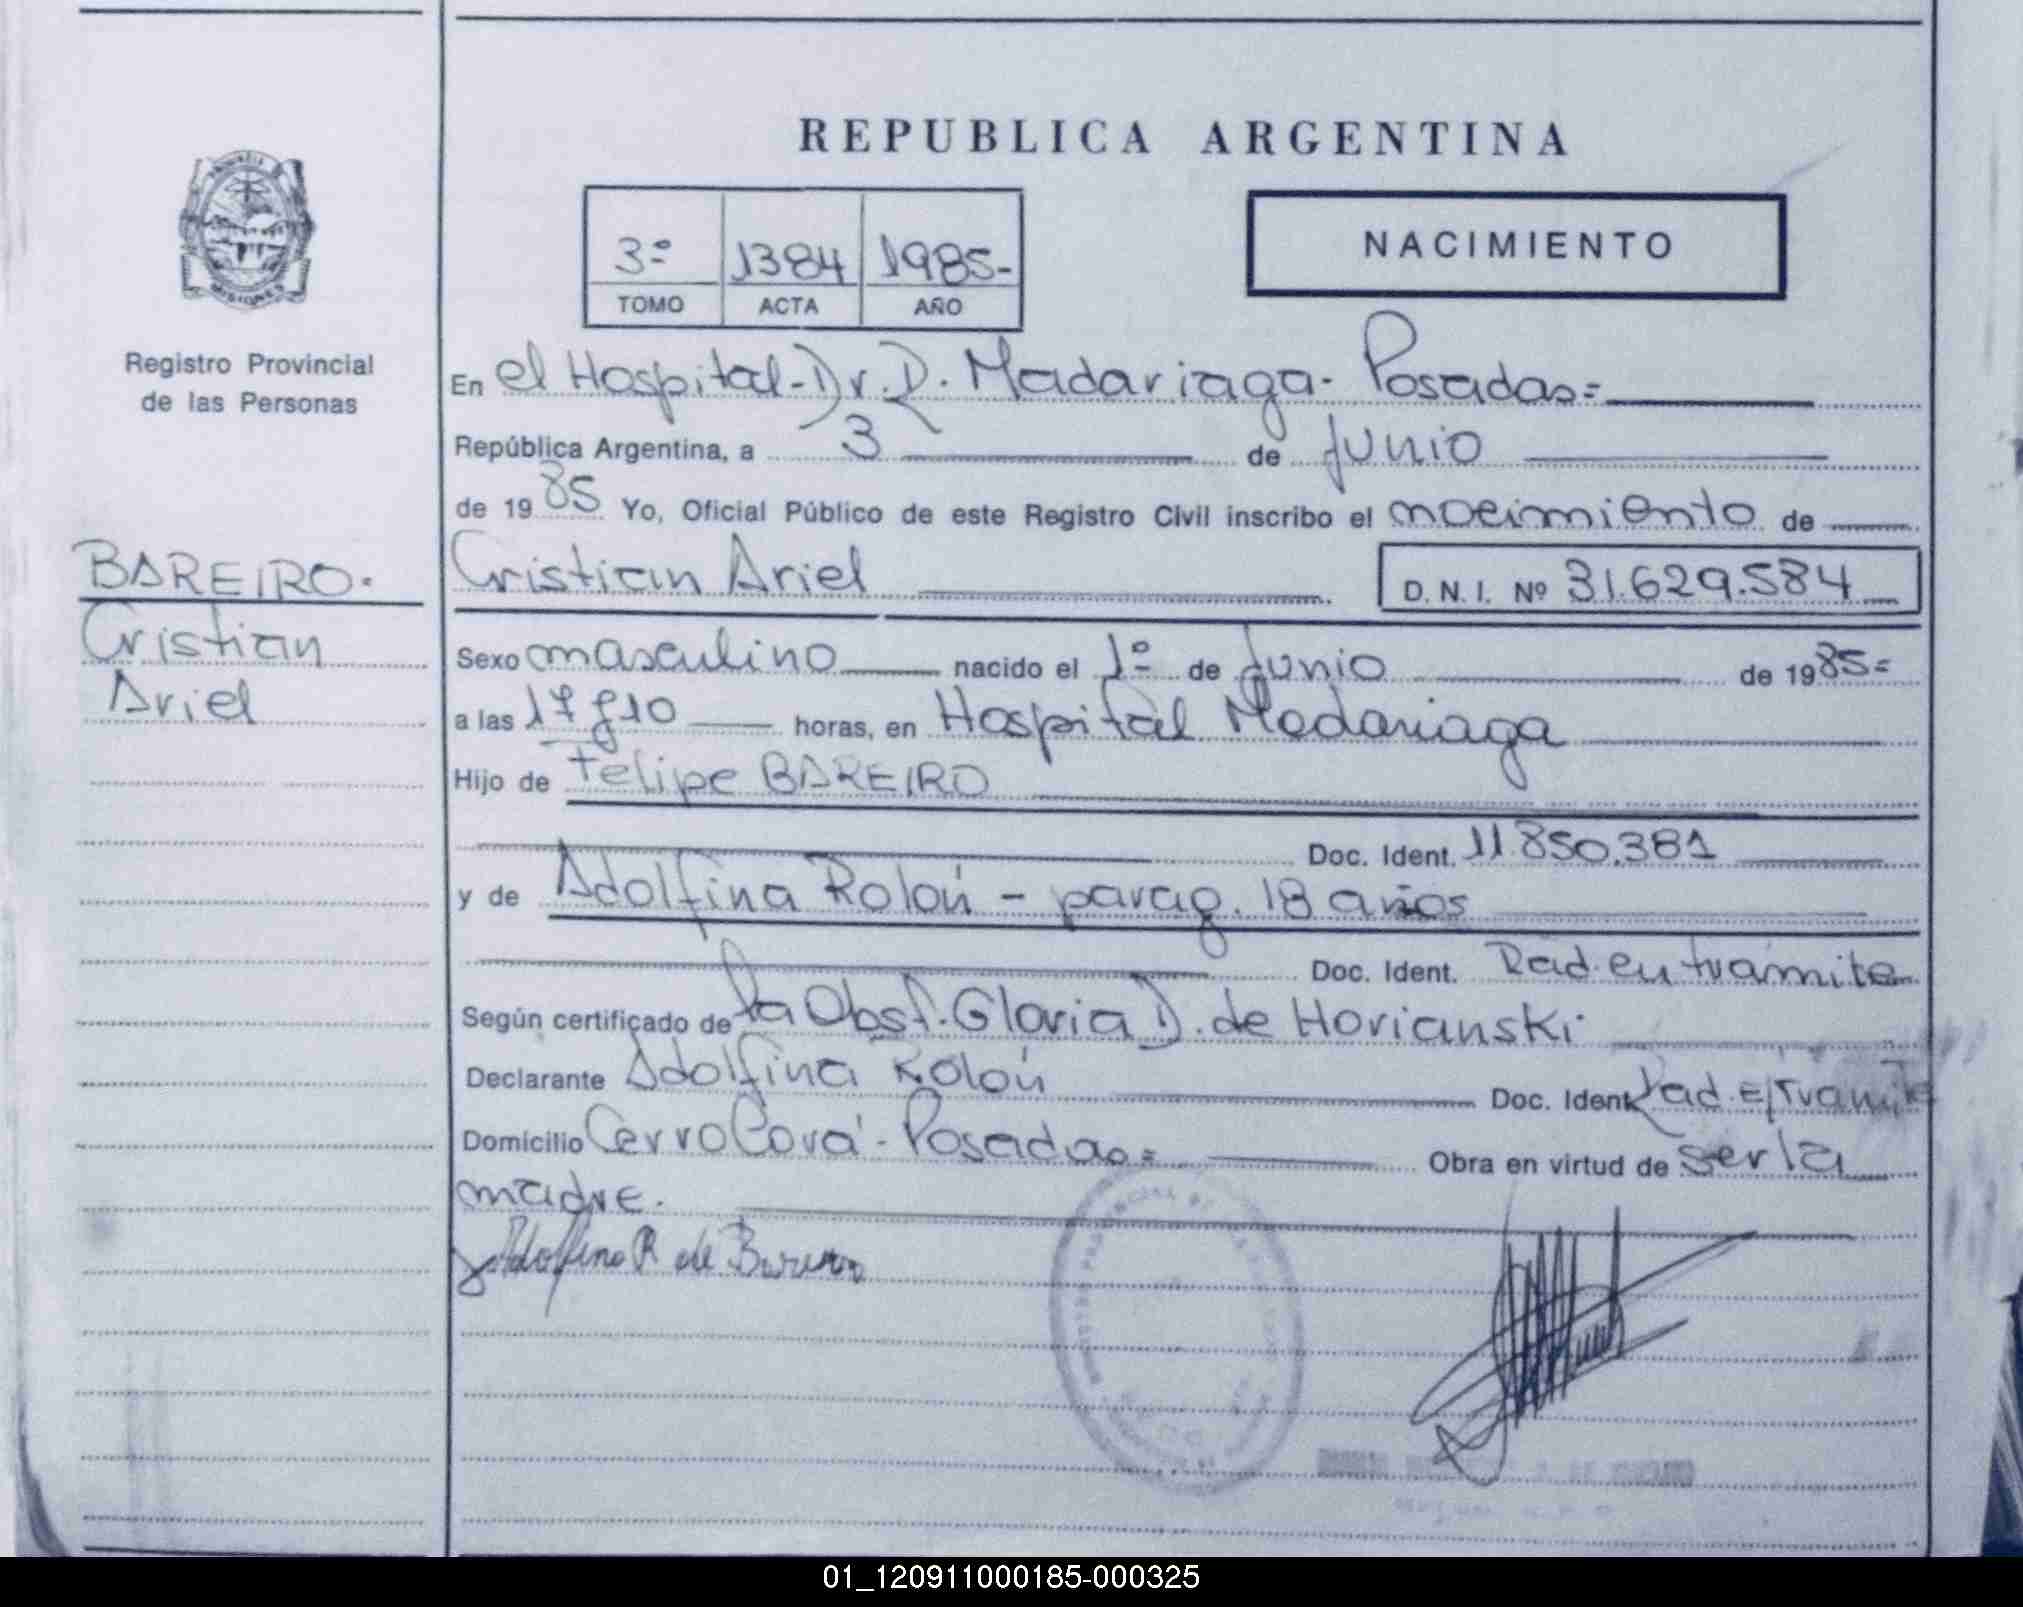 REPUBLICA ARGENTINA
MISIONES
Registro Provincial
de las Personas
3º 1384 1985-
TOMO ACTA AÑO
NACIMIENTO
En el Hospital-Dr. R. Madariaga- Posadas=
República Argentina, a 3 de Junio
de 1985 Yo, Oficial Público de este Registro Civil inscribo el nacimiento de
BAREIRO.
Cristian
Ariel
Cristian Ariel D. N. I. Nº 31.629.584
Sexo masculino nacido el 1º de Junio de 1985=
a las 17 y 10 horas, en Hospital Madariaga
Hijo de Felipe BAREIRO
Doc. Ident. 11.850.381
y de Adolfina Rolón - parag. 18 años
Doc. Ident. Rad. en trámite
Según certificado de la Obst. Gloria D. de Horianski
Declarante Adolfina Rolón Doc. Ident Rad. E/Trámite
Domicilio Cerro Corá - Posadas= Obra en virtud de ser la
madre.
Adolfina R de Bareiro
01_120911000185-000325